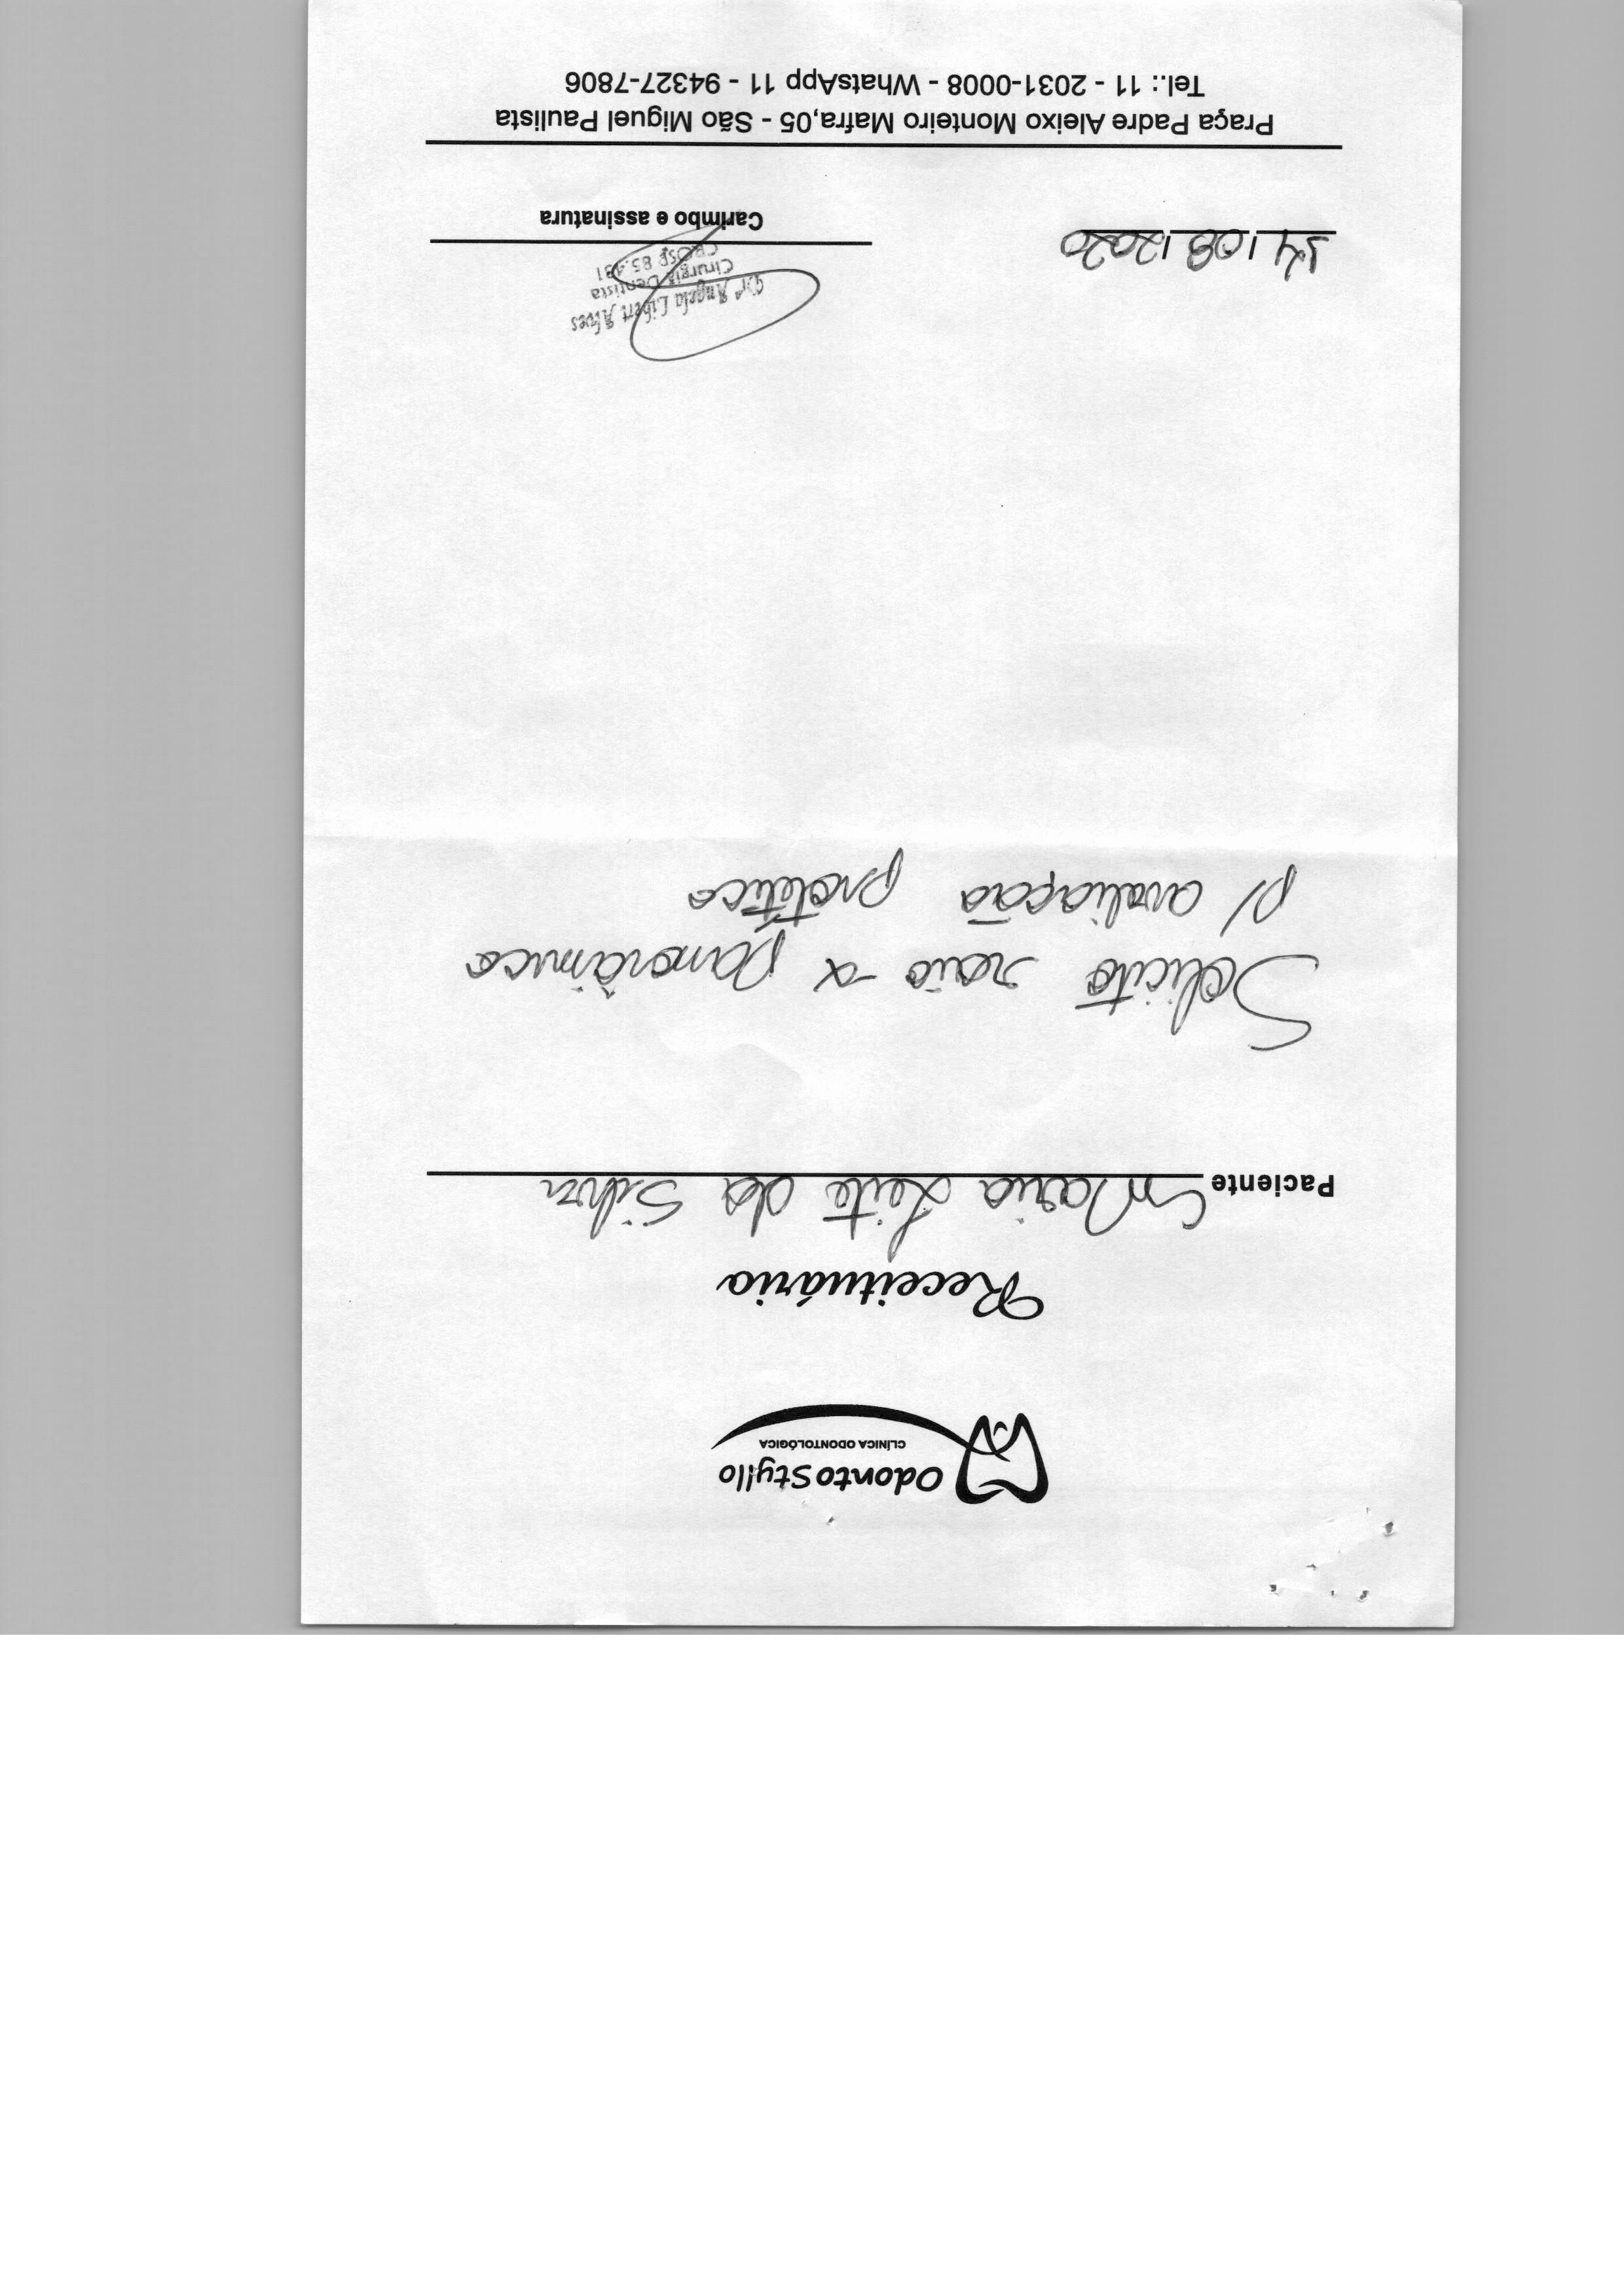 OdontoStyllo
CLÍNICA ODONTOLÓGICA
Receituário
Paciente Maria Leite da Silva
Solicito raio-x panorâmico
p/ avaliação protética
14/08/2020
Drª Angela Libert Alves
Cirurgiã Dentista
CROSP 85.431
Carimbo e assinatura
Praça Padre Aleixo Monteiro Mafra,05 - São Miguel Paulista
Tel.: 11 - 2031-0008 - WhatsApp 11 - 94327-7806